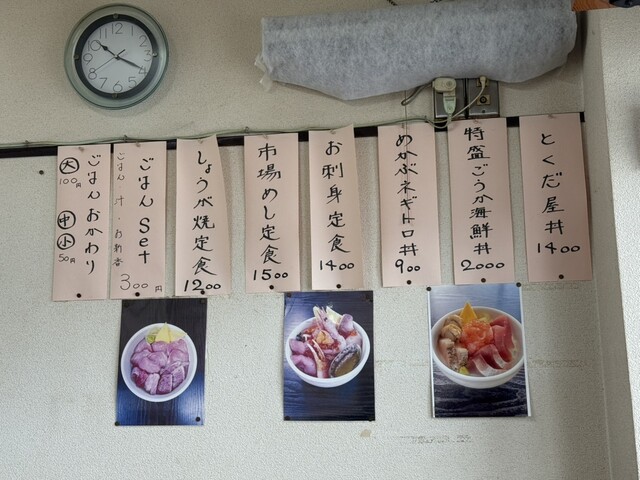 とくだ屋丼
1400
特盛ごうか海鮮丼
2000
めかぶネギトロ丼
900
お刺身定食
1400
市場めし定食
1500
しょうが焼定食
1200
ごはんSet
ごはん 汁・お新香
300円
ごはんおかわり
大
100円
中
小
50円